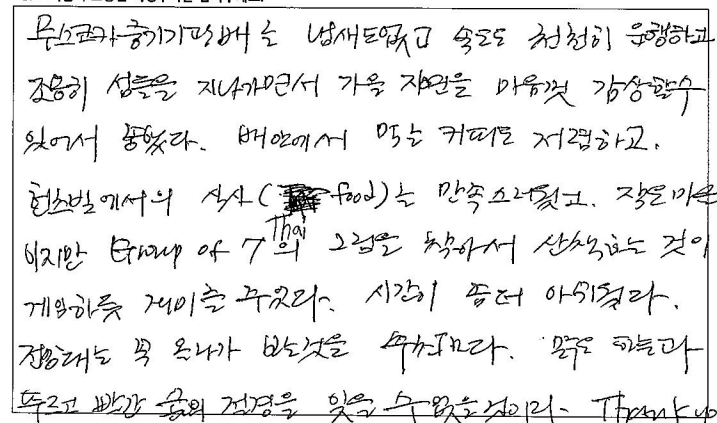 무스코카 증기기관배는 냄새도없고 속도도 천천히 운행하고
조용히 섬들을 지나가면서 가을 자연을 마음껏 감상할수
있어서 좋았다. 배안에서 먹는 커피도 저렴하고.
헌츠빌에서의 식사(Thai food)는 만족스러웠고. 작은마을
이지만 Group of 7의 그림을 찾아서 산책하는 것이
게임하듯 재미를 주었다. 시간이 좀더 아쉬웠다.
전망대는 꼭 올라가 보는것을 추천한다. 맑은 하늘과
푸르고 빨간 숲의 전경을 잊을 수 없을것이다. Thank